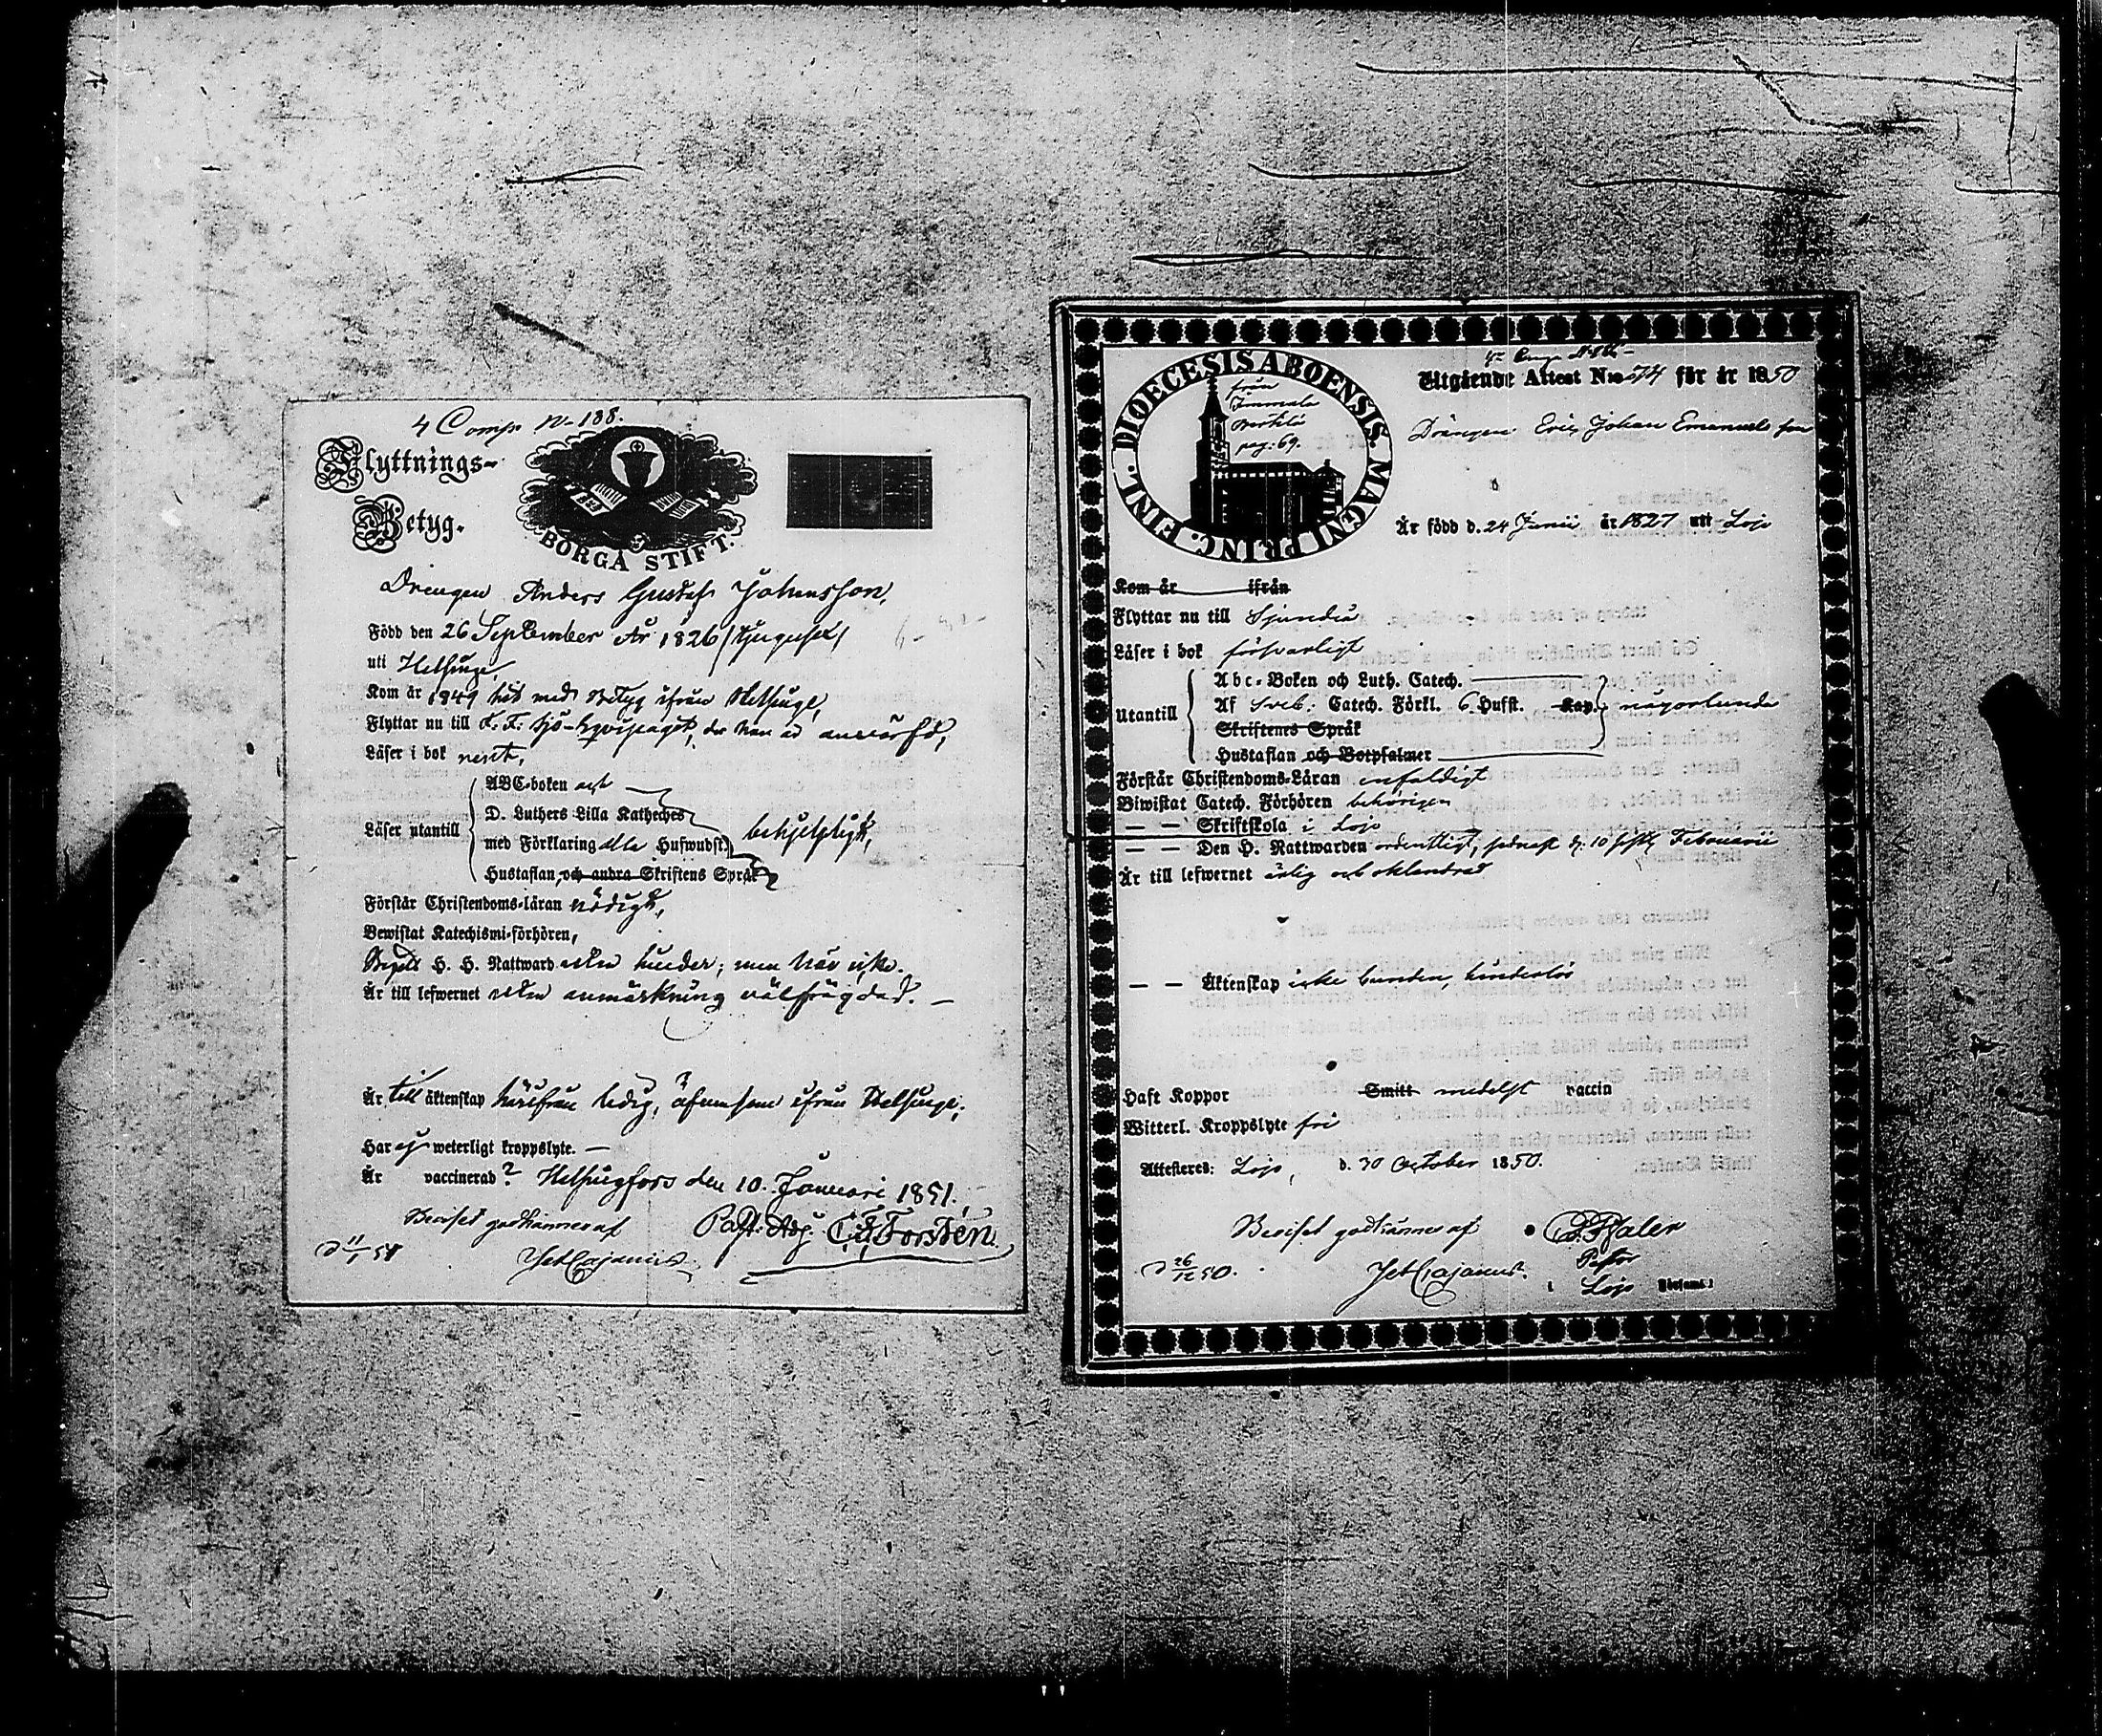 4 Comp. N- 188.
Flyttnings-
Betyg.
BORGÅ STIFT.
Drengen Anders Gustaf Johansson,
Född den 26 September År 1826 /tjugusex/
uti Helsinge,
Kom år 1849 hit med Betyg ifrån Helsinge,
Flyttar nu till K. F. Sjö-Eqvipaget, der han är anvärfd,
Läser i bok rent,
ABC-boken och
D. Luthers Lilla Katheches
Läser utantill
med Förklaring alla Hufwudst.
behjelpligt,
Hustaflan, och andra Skriftens Språk
Förstår Christendoms-läran nödigt,
Bewistat Katechismi-förhören,
Begått H. H. Nattward utan hinder; men här icke.
Är till lefwernet utan anmärkning välfrägdad. —
Är till äktenskap härifrån ledig, äfvensom ifrån Helsinge;
Har ej weterligt kroppslyte. —
Är vaccinerad? Helsingfors den 10. Januari 1851.
Beviset godkännes af
Past. Adj. C. F. Forstén.
D 11/1 51
Cajanus
DIOECESIS ABOENSIS. MAGNI PRINC. FINL.
från
pag: 69.
Utgående Attest N:o 74 för år 1850
Drängen Eric Johan Emanuels son
Är född d. 24 Junii år 1827 uti Lojo
Kom år ifrån
Flyttar nu till Sjundeå
Läser i bok försvarligt
Abc-Boken och Luth. Catech.
Utantill
Af Sveb: Catech. Förkl. 6 Hufst. Kap.
någorlunda
Skriftenes Språk
Hustaflan och Botpsalmer
Förstår Christendoms-Läran enfaldigt
Biwistat Catech. Förhören behörigen
— — Skriftskola i Lojo
— — Den H. Nattwarden ordentligt, sednast d. 10 sistl. Februarii
Är till lefwernet ärlig och oklandrad
— — Äktenskap icke bunden, hinderlös
Haft Koppor Smitt medelst vaccin
Witterl. Kroppslyte fri
Attesteras: Lojo, d. 30 October 1850.
Beviset godkännes af
D 26/12 50.
Cajanus.
Pastor
i Lojo Församl: